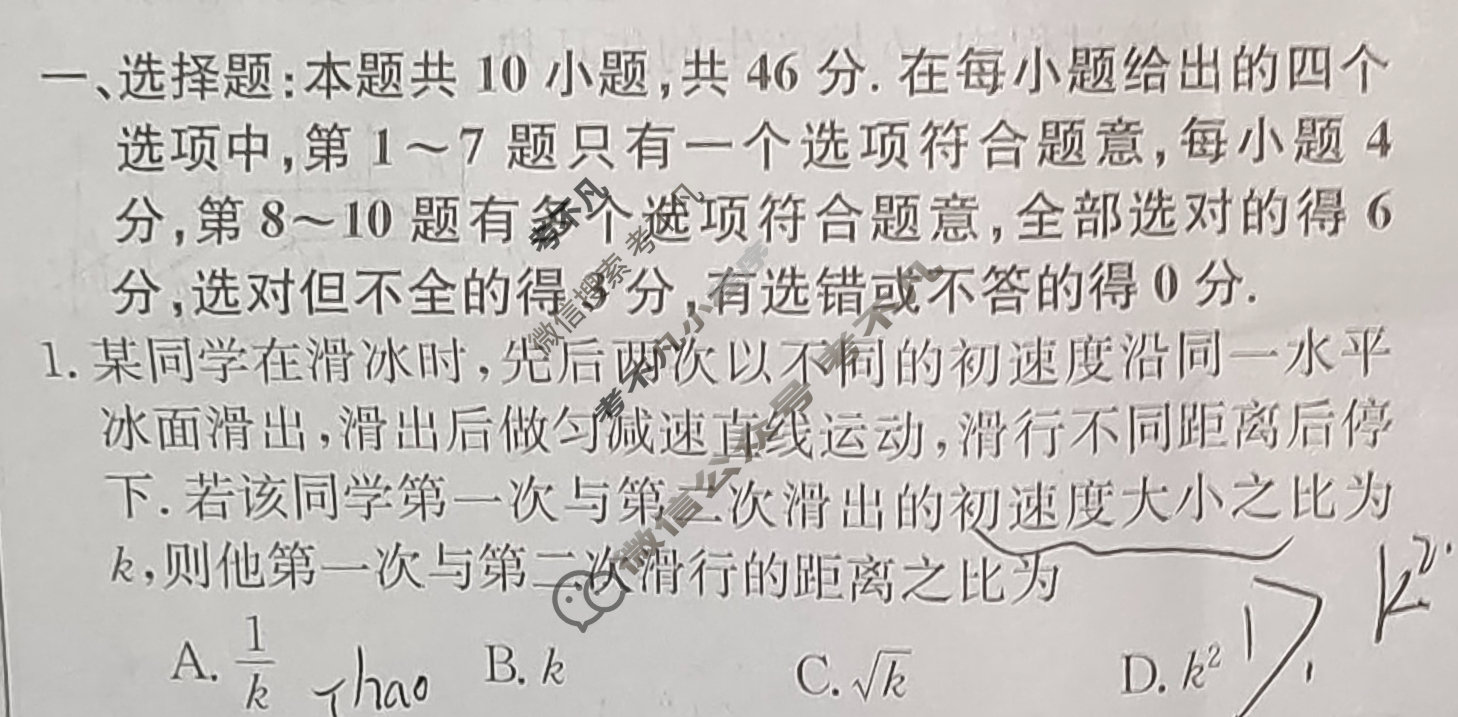 一、选择题:本题共 10 小题,共 46 分. 在每小题给出的四个
选项中,第 1～7 题只有一个选项符合题意,每小题 4
分,第 8～10 题有多个选项符合题意,全部选对的得 6
分,选对但不全的得 3 分,有选错或不答的得 0 分.
1. 某同学在滑冰时,先后两次以不同的初速度沿同一水平
冰面滑出,滑出后做匀减速直线运动,滑行不同距离后停
下. 若该同学第一次与第二次滑出的初速度大小之比为
k,则他第一次与第二次滑行的距离之比为
A. 1/k B. k C. √k D. k²
k²
hao
考不凡
微信搜索 考不凡
考不凡小程序
微信公众号 考不凡